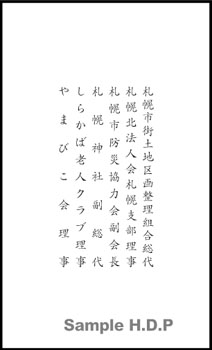 札幌市街土地区画整理組合総代
札幌北法人会札幌支部理事
札幌市防災協力会副会長
札幌神社副総代
しらかば老人クラブ理事
やまびこ会理事
Sample H.D.P